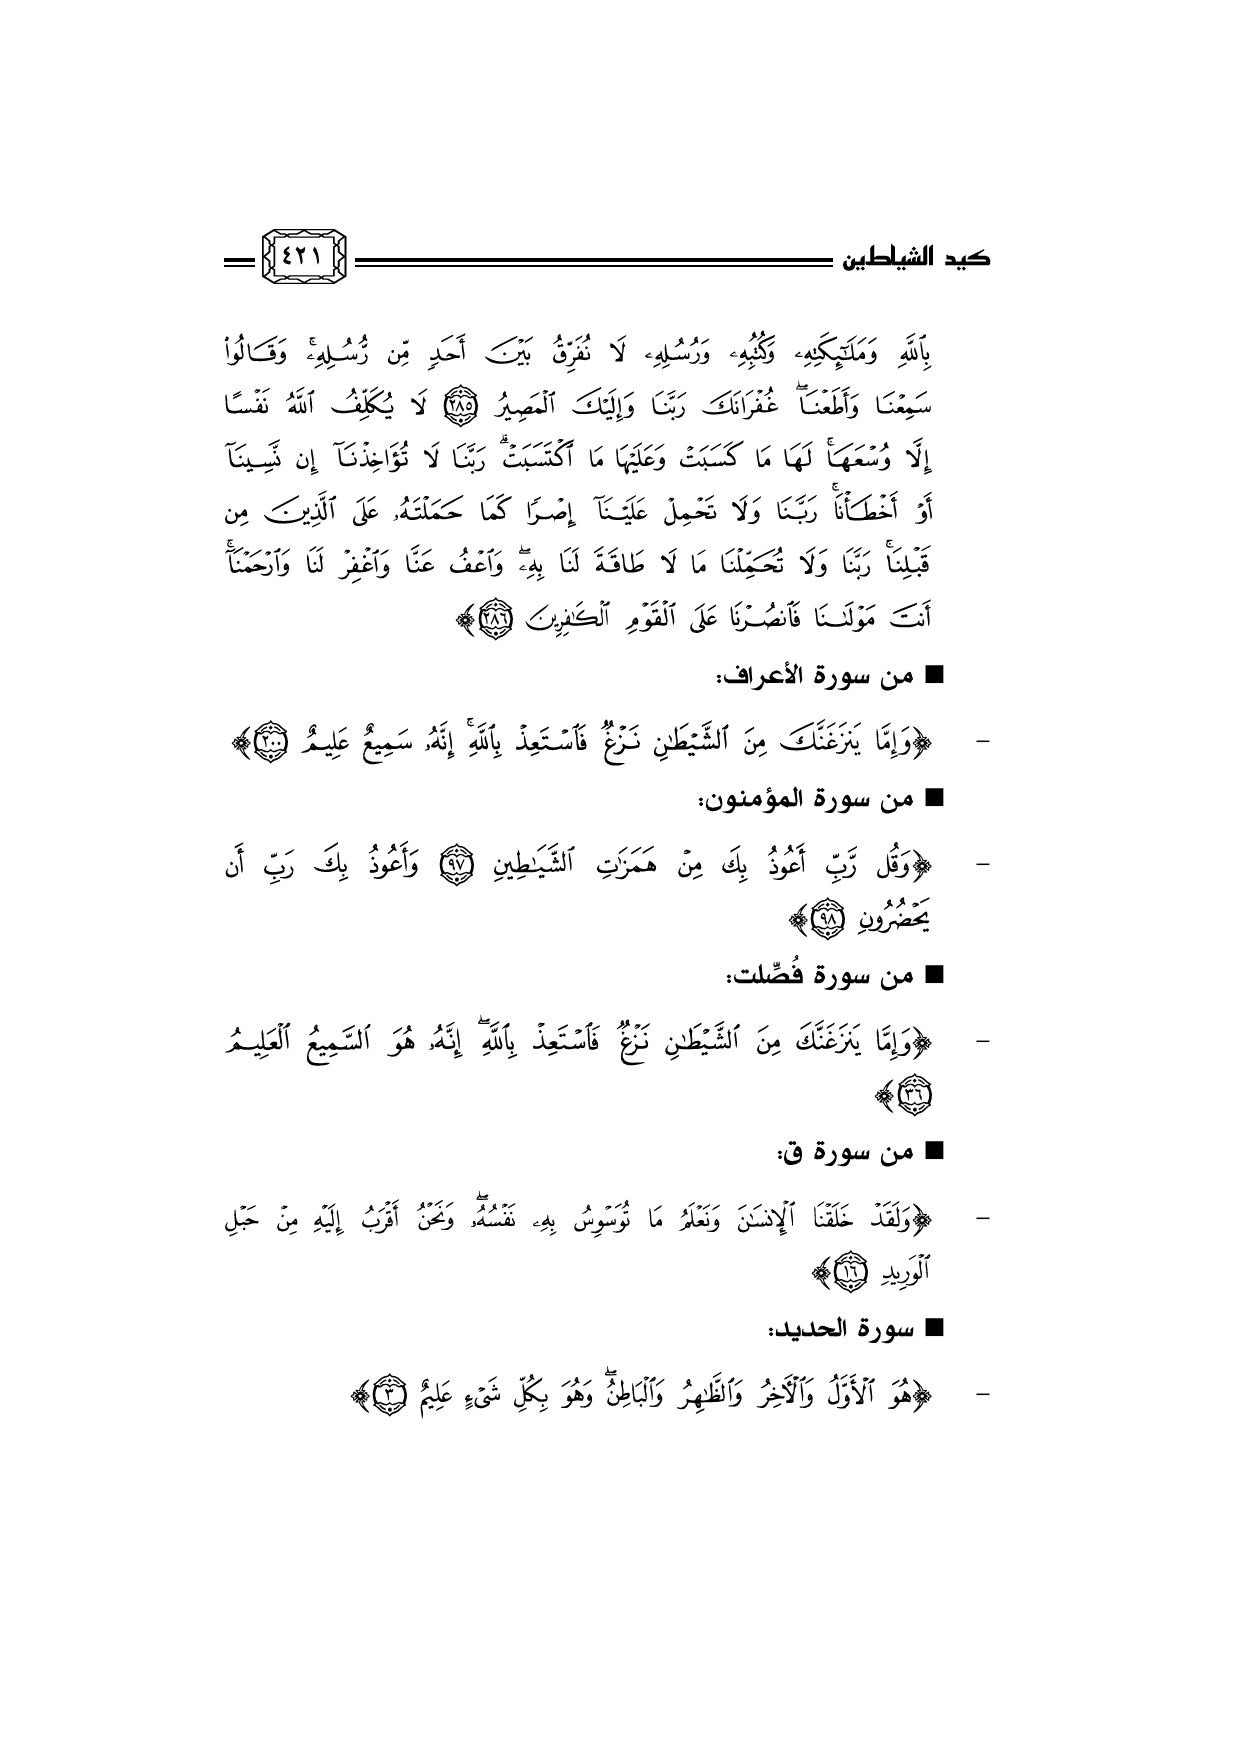 كيد الشياطين ٤٢١
بِٱللَّهِ وَمَلَٰٓئِكَتِهِۦ وَكُتُبِهِۦ وَرُسُلِهِۦ لَا نُفَرِّقُ بَيْنَ أَحَدٍ مِّن رُّسُلِهِۦۚ وَقَالُوا۟
سَمِعْنَا وَأَطَعْنَاۖ غُفْرَانَكَ رَبَّنَا وَإِلَيْكَ ٱلْمَصِيرُ ٢٨٥ لَا يُكَلِّفُ ٱللَّهُ نَفْسًا
إِلَّا وُسْعَهَاۚ لَهَا مَا كَسَبَتْ وَعَلَيْهَا مَا ٱكْتَسَبَتْۗ رَبَّنَا لَا تُؤَاخِذْنَآ إِن نَّسِينَآ
أَوْ أَخْطَأْنَاۚ رَبَّنَا وَلَا تَحْمِلْ عَلَيْنَآ إِصْرًا كَمَا حَمَلْتَهُۥ عَلَى ٱلَّذِينَ مِن
قَبْلِنَاۚ رَبَّنَا وَلَا تُحَمِّلْنَا مَا لَا طَاقَةَ لَنَا بِهِۦۖ وَٱعْفُ عَنَّا وَٱغْفِرْ لَنَا وَٱرْحَمْنَآۚ
أَنتَ مَوْلَىٰنَا فَٱنصُرْنَا عَلَى ٱلْقَوْمِ ٱلْكَٰفِرِينَ ٢٨٦ ﴾
■ من سورة الأعراف:
– ﴿وَإِمَّا يَنزَغَنَّكَ مِنَ ٱلشَّيْطَٰنِ نَزْغٌ فَٱسْتَعِذْ بِٱللَّهِۚ إِنَّهُۥ سَمِيعٌ عَلِيمٌ ٢٠٠ ﴾
■ من سورة المؤمنون:
– ﴿وَقُل رَّبِّ أَعُوذُ بِكَ مِنْ هَمَزَٰتِ ٱلشَّيَٰطِينِ ٩٧ وَأَعُوذُ بِكَ رَبِّ أَن
يَحْضُرُونِ ٩٨ ﴾
■ من سورة فُصِّلت:
– ﴿وَإِمَّا يَنزَغَنَّكَ مِنَ ٱلشَّيْطَٰنِ نَزْغٌ فَٱسْتَعِذْ بِٱللَّهِۖ إِنَّهُۥ هُوَ ٱلسَّمِيعُ ٱلْعَلِيمُ
٣٦ ﴾
■ من سورة ق:
– ﴿وَلَقَدْ خَلَقْنَا ٱلْإِنسَٰنَ وَنَعْلَمُ مَا تُوَسْوِسُ بِهِۦ نَفْسُهُۥۖ وَنَحْنُ أَقْرَبُ إِلَيْهِ مِنْ حَبْلِ
ٱلْوَرِيدِ ١٦ ﴾
■ سورة الحديد:
– ﴿هُوَ ٱلْأَوَّلُ وَٱلْءَاخِرُ وَٱلظَّٰهِرُ وَٱلْبَاطِنُۖ وَهُوَ بِكُلِّ شَىْءٍ عَلِيمٌ ٣ ﴾